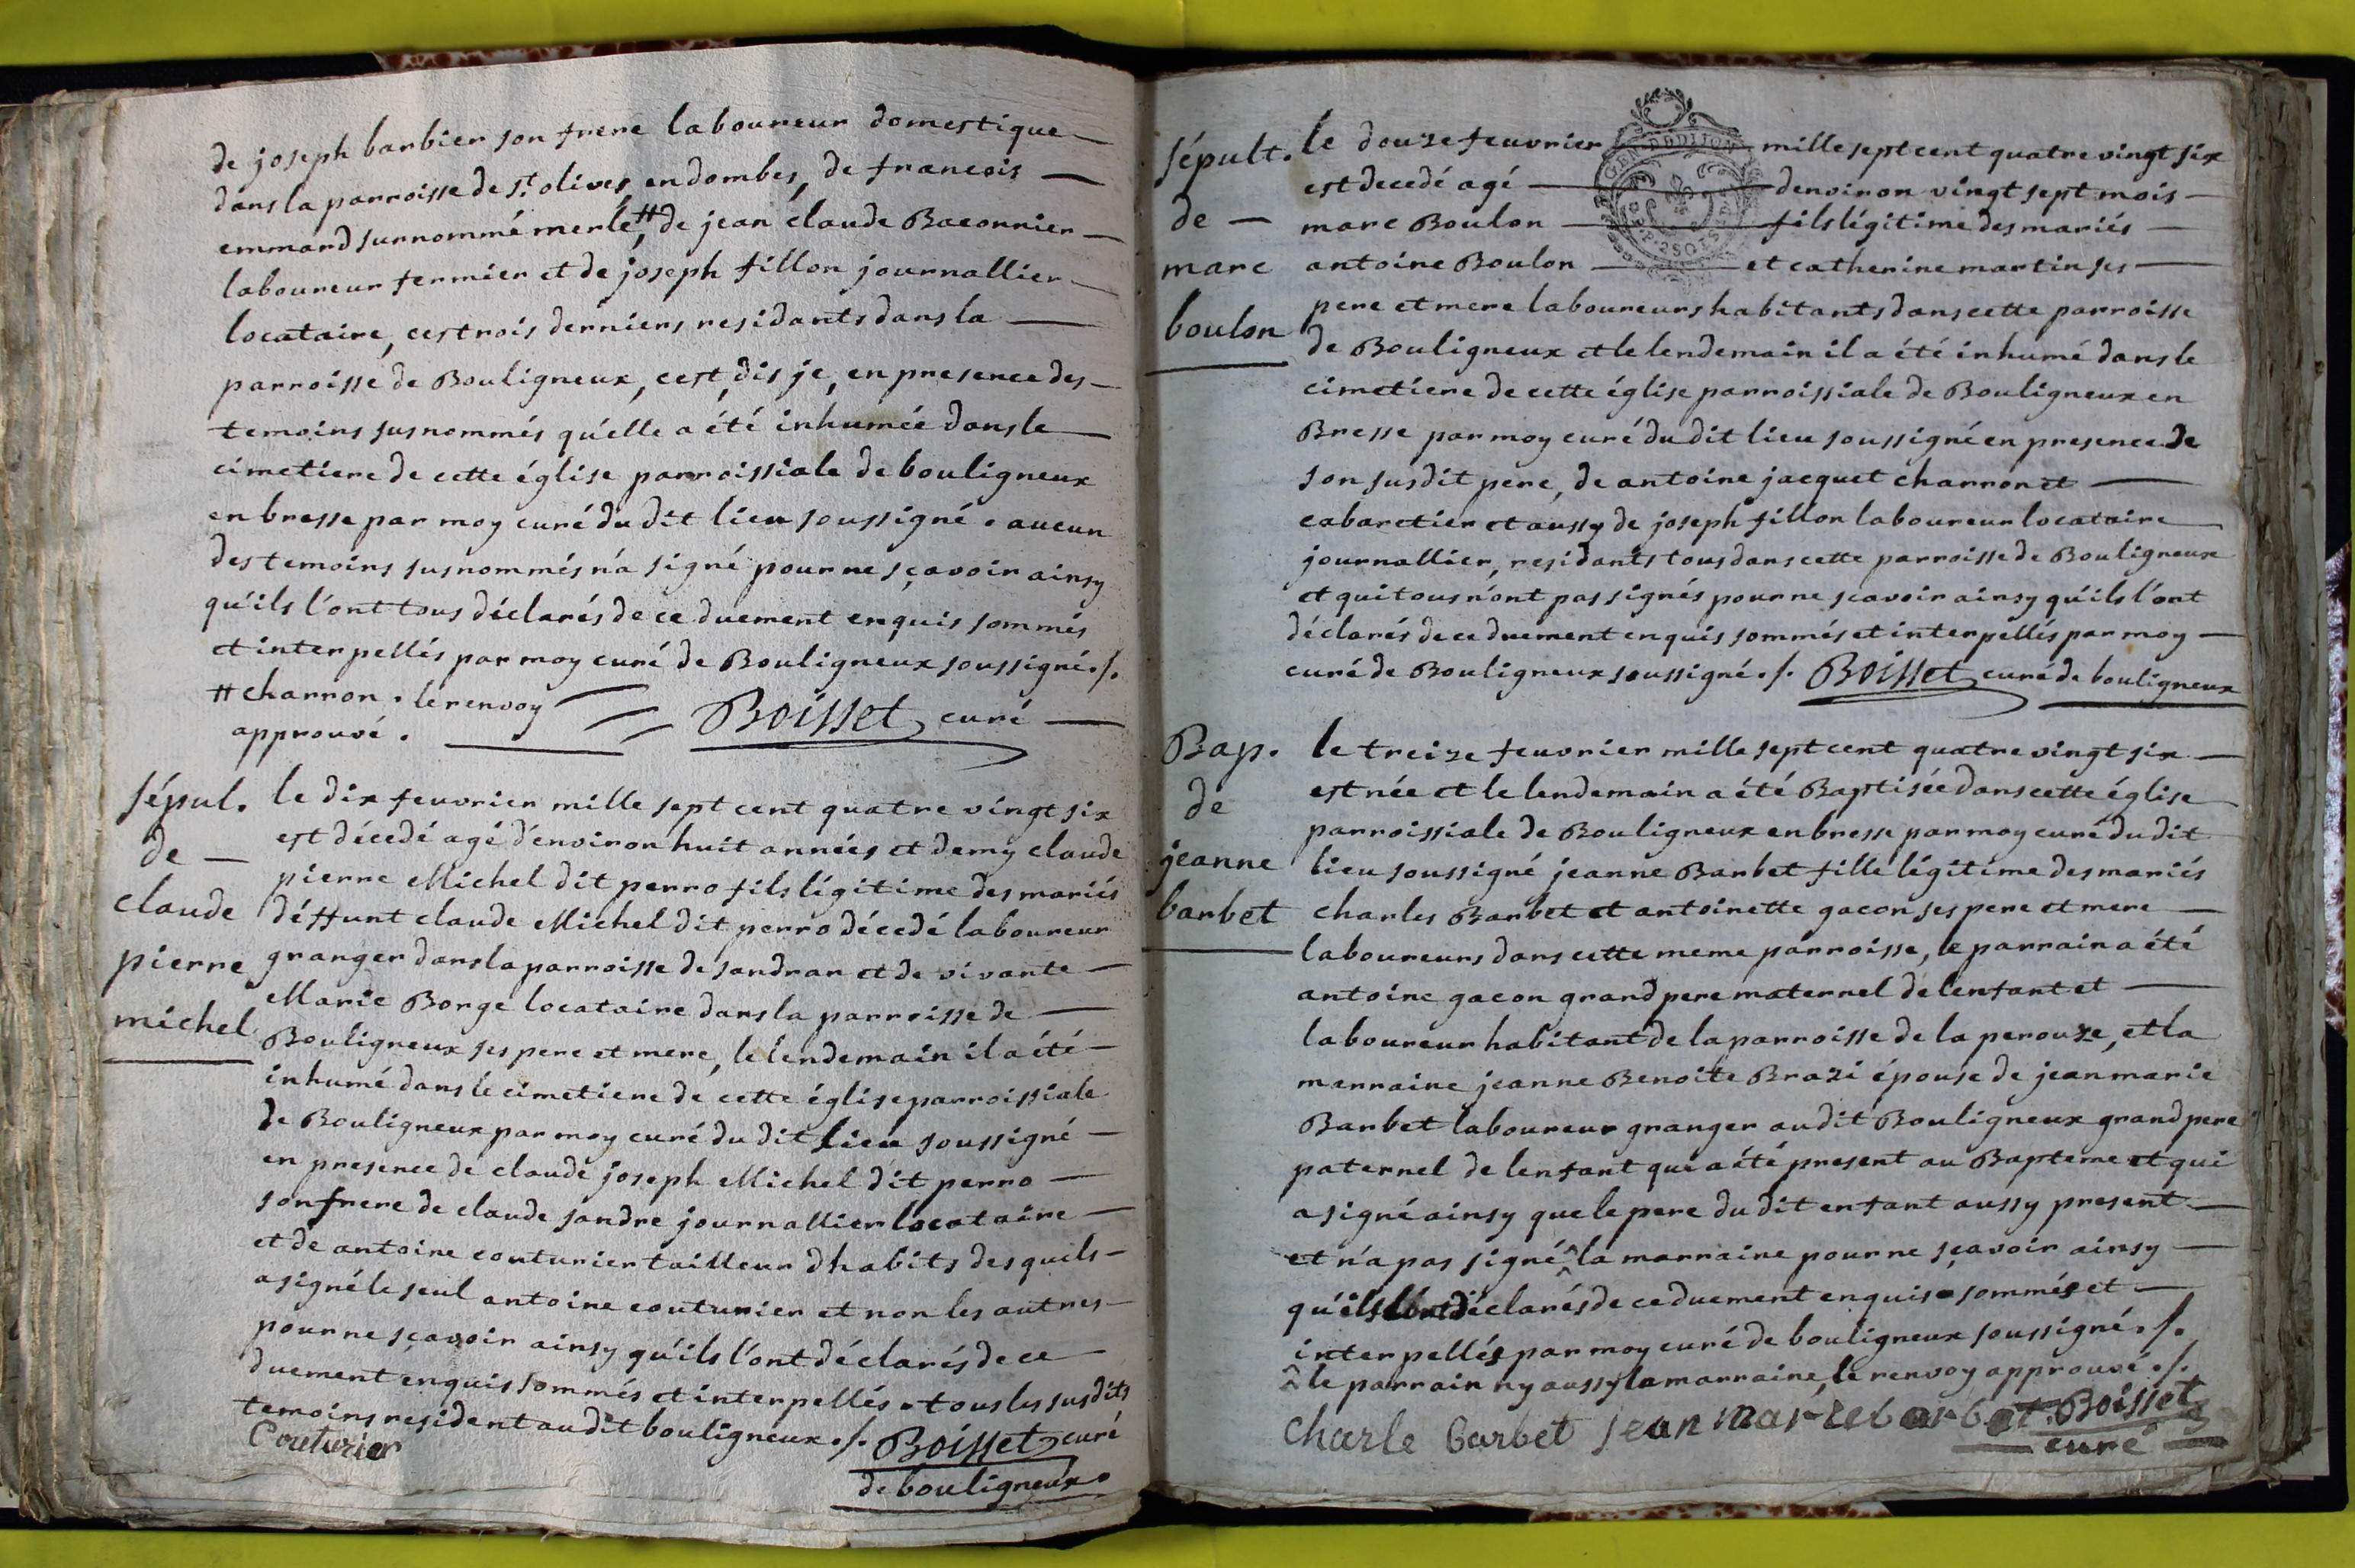 de joseph barbier son frere laboureur domestique
dans la parroisse de st. olives, en dombes, de francois
emmard surnommé merle, # de jean claude Baconnier
laboureur fermier et de joseph fillon journallier
locataire, ces trois derniers residants dans la
parroisse de Bouligneux, c'est, dis je, en presence des
temoins susnommés qu'elle a été inhumée dans le
cimetiere de cette église parroissiale de bouligneux
en bresse par moy curé du dit lieu soussigné. aucun
des temoins susnommés n'a signé pour ne sçavoir ainsy
qu'ils l'ont tous déclarés de ce duement enquis sommés
et interpellés par moy curé de Bouligneux soussigné ./.
# charron. le renvoy
approuvé. Boisset curé
sépul.
de
claude
pierre
michel
le dix feuvrier mille sept cent quatre vingt six
est décedé agé d'environ huit années et demy claude
pierre Michel dit perro fils légitime des mariés
déffunt claude Michel dit perro décedé laboureur
granger dans la parroisse de sandran et de vivante
Marie Borge locataire dans la parroisse de
Bouligneux ses pere et mere, le lendemain il a été
inhumé dans le cimetiere de cette église parroissiale
de Bouligneux par moy curé du dit lieu soussigné
en presence de claude joseph Michel dit perro
son frere de claude sandre journallier locataire
et de antoine couturier tailleur d'habits desquels
a signé le seul antoine couturier et non les autres
pour ne sçavoir ainsy qu'ils l'ont déclarés de ce
duement enquis sommés et interpellés. tous les susdits
temoins resident audit bouligneux ./. Boisset curé
Couturier
de bouligneux.
sépult.
de
marc
boulon
le douze feuvrier mille sept cent quatre vingt six
est decedé agé denviron vingt sept mois
marc Boulon fils légitime des mariés
antoine Boulon et catherine martin ses
pere et mere laboureurs habitants dans cette parroisse
de Bouligneux et le lendemain il a été inhumé dans le
cimetiere de cette église parroissiale de Bouligneux en
Bresse par moy curé du dit lieu soussigné en presence de
son susdit pere, de antoine jacquet charron et
cabaretier et aussy de joseph fillon laboureur locataire
journallier, residants tous dans cette parroisse de Bouligneux
et qui tous n'ont pas signés pour ne sçavoir ainsy qu'ils l'ont
déclarés de ce duement enquis sommés et interpellés par moy
curé de Bouligneux soussigné ./. Boisset curé de bouligneux
Bap.
de
jeanne
barbet
le treize feuvrier mille sept cent quatre vingt six
est née et le lendemain a été Baptisée dans cette église
parroissiale de Bouligneux en bresse par moy curé du dit
lieu soussigné jeanne Barbet fille légitime des mariés
charles Barbet et antoinette gacon ses pere et mere
laboureurs dans cette meme parroisse, le parrain a été
antoine gacon grand pere maternel de lenfant et
laboureur habitant de la parroisse de la perouze, et la
marraine jeanne Benoite Brazi épouse de jean marie
Barbet laboureur granger audit Bouligneux grand pere
paternel de lenfant qui a été present au Bapteme et qui
a signé ainsy que le pere du dit enfant aussy present
et n'a pas signé ^ la marraine pour ne sçavoir ainsy
qu'ils l'ont déclarés de ce duement enquis sommés et
interpellés par moy curé de bouligneux soussigné ./.
^ le parrain ny aussy la marraine, le renvoy approuvé ./.
charle barbet jean marie barbet Boisset
curé